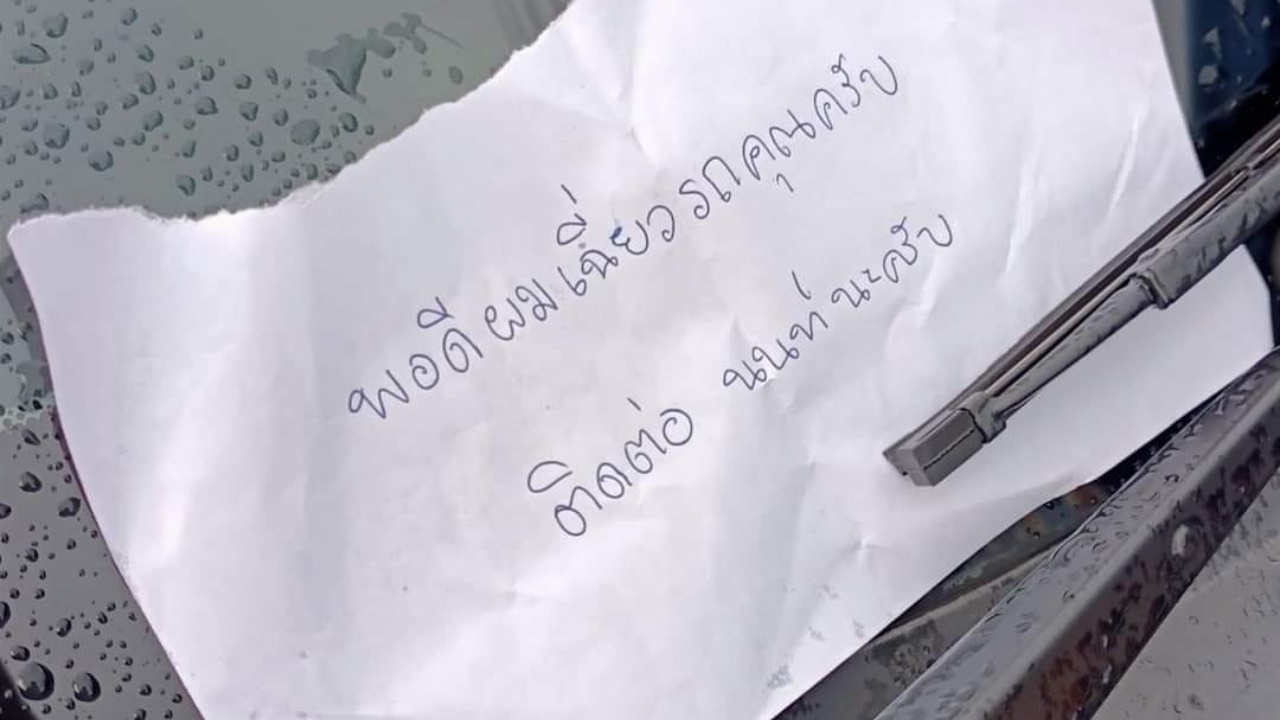 พอดีผมเฉี่ยวรถคุณครับ
ติดต่อ นนท์ นะครับ